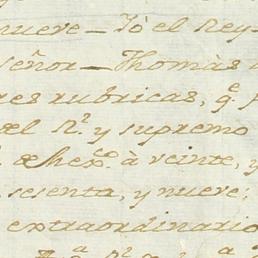 nueve - Yo el Rey
señor - Thomàs
res rubricas, q.e
del R.l y supremo
à veinte, y
sesenta, y nueve;
extraordinario